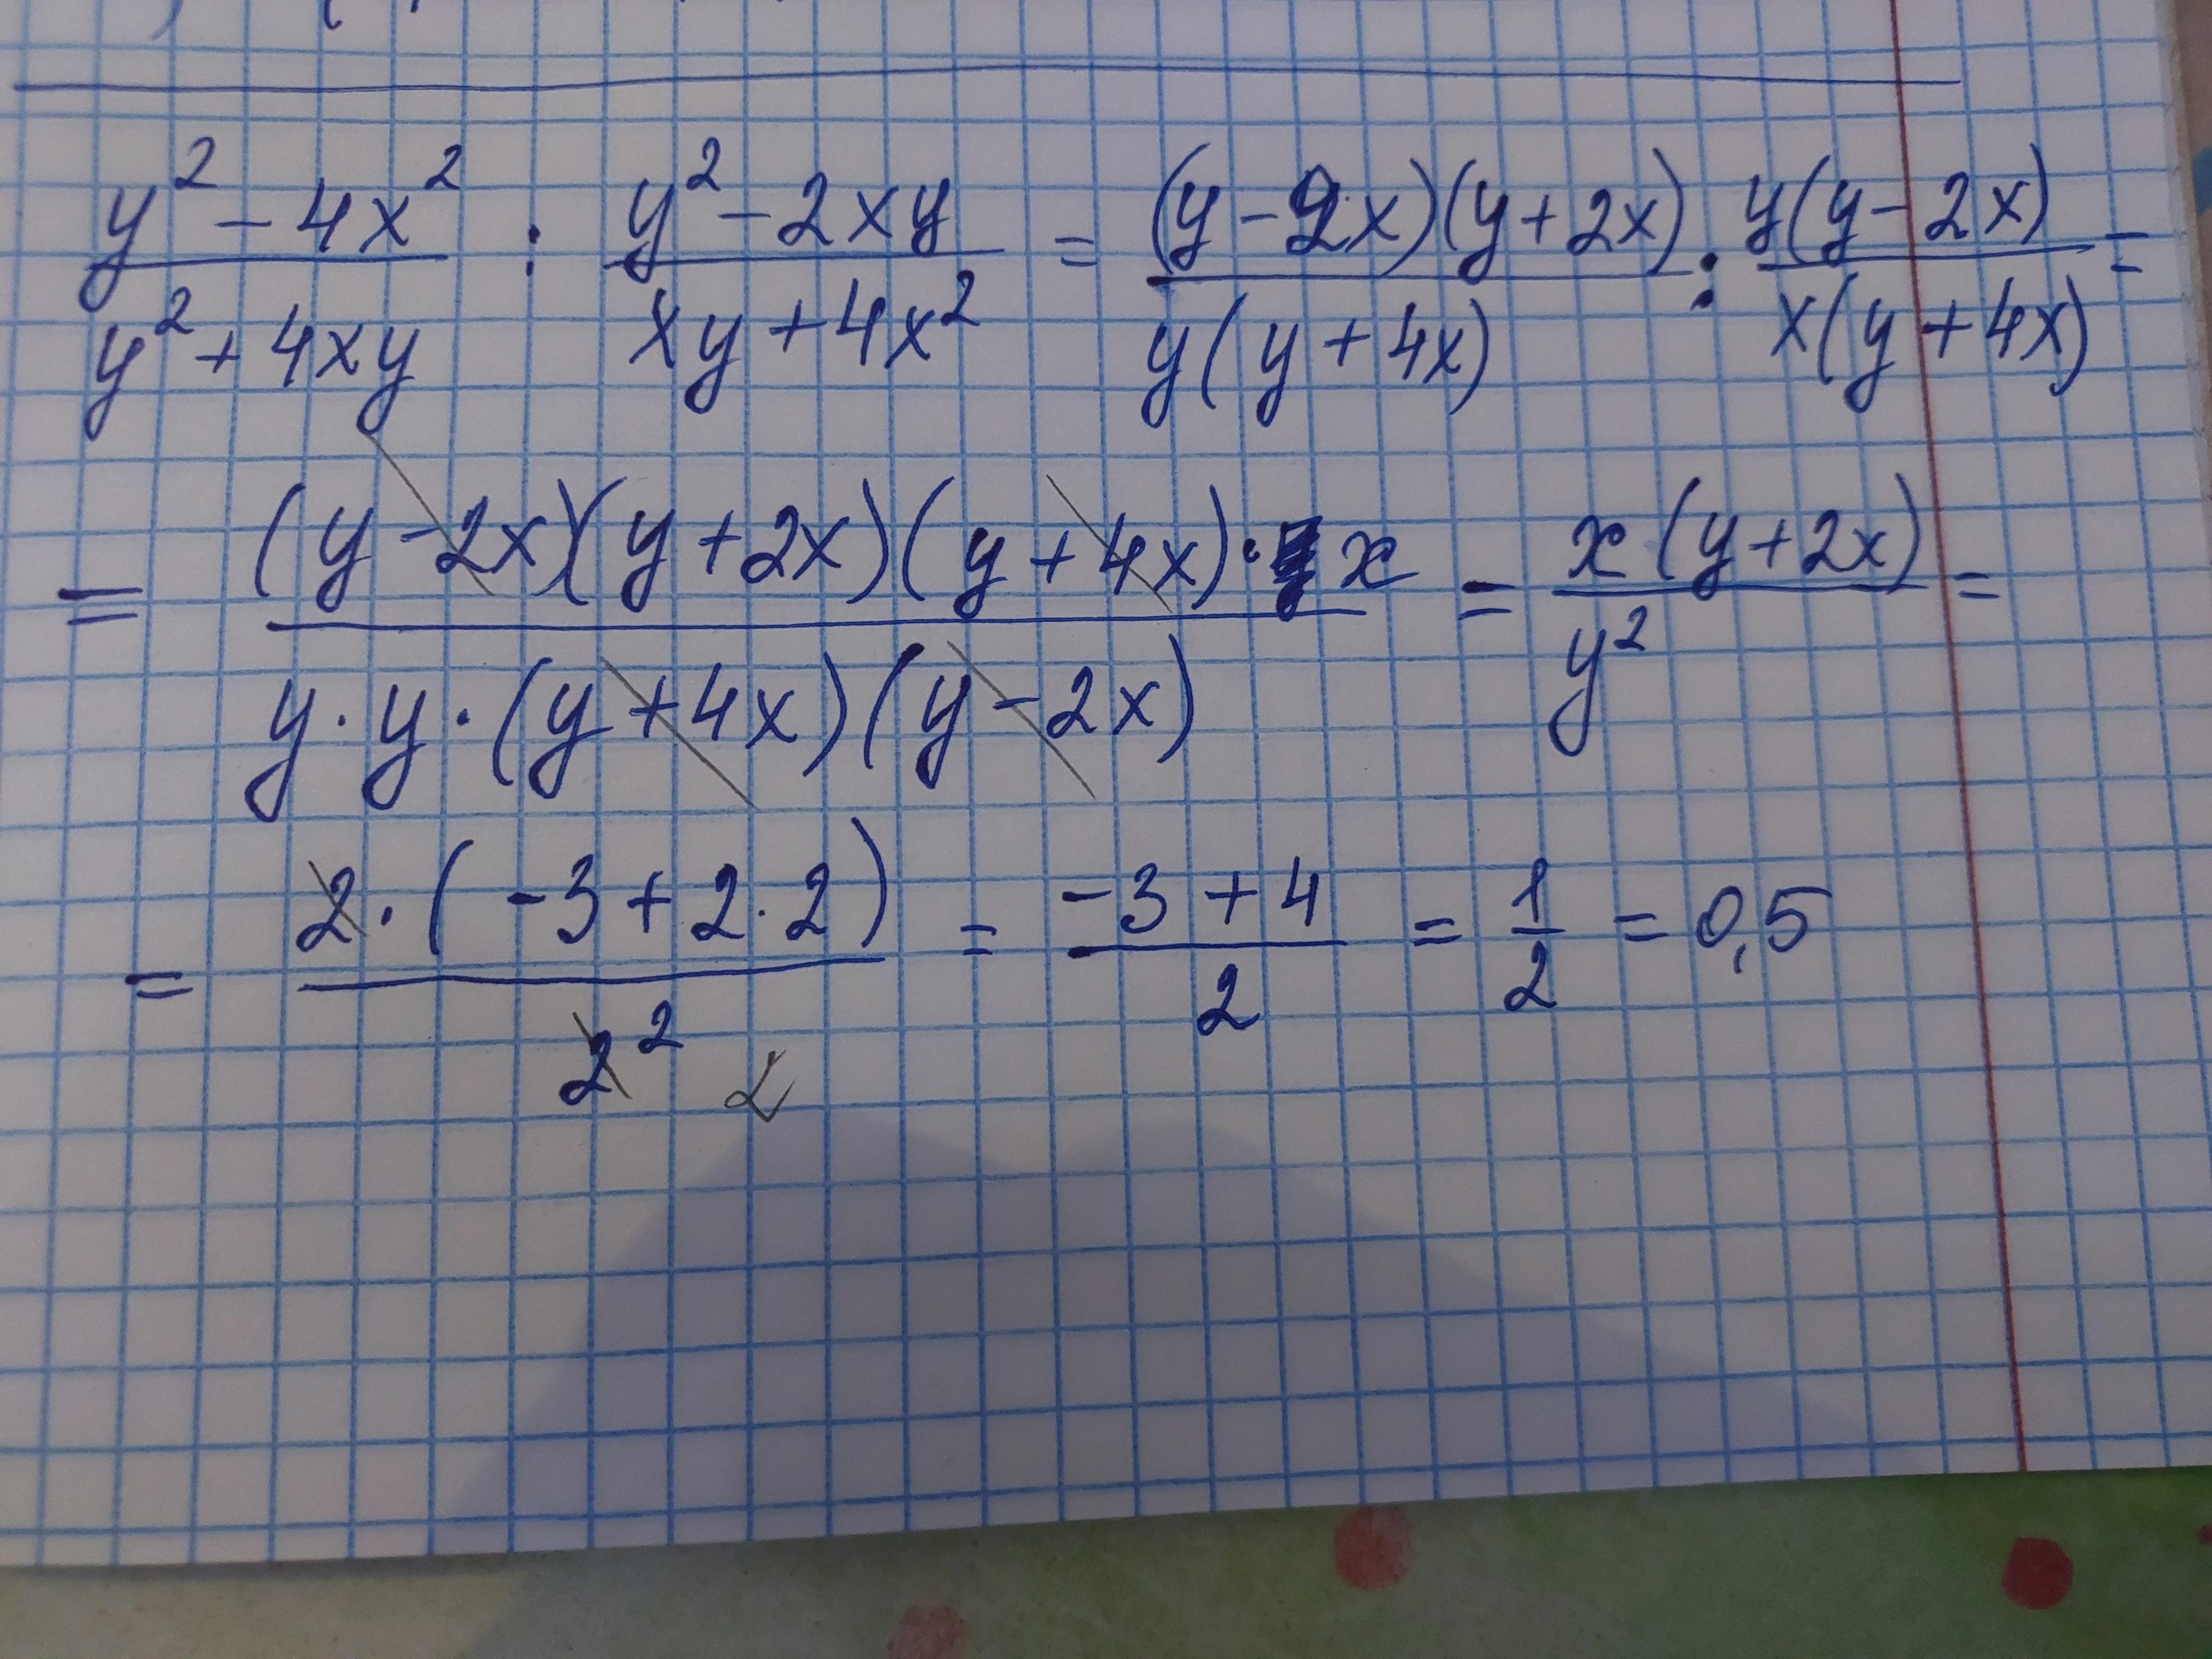 (y² - 4x²)/(y² + 4xy) : (y² - 2xy)/(xy + 4x²) = ((y - 2x)(y + 2x))/(y(y + 4x)) : (y(y - 2x))/(x(y + 4x)) =
= ((y - 2x)(y + 2x)(y + 4x) · x)/(y · y · (y + 4x)(y - 2x)) = (x(y + 2x))/y² =
= (2 · (-3 + 2 · 2))/2² 2 = (-3 + 4)/2 = 1/2 = 0,5